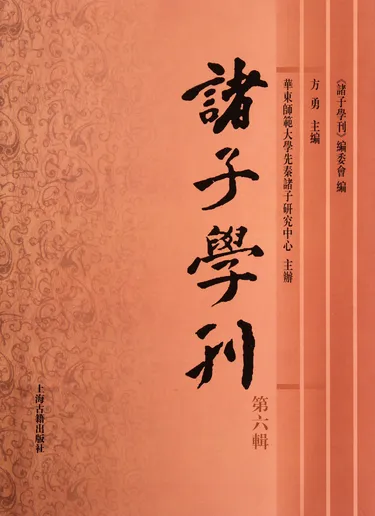 《諸子學刊》編委會 編
方勇 主編
華東師範大學先秦諸子研究中心 主辦
諸子學刊
第六輯
上海古籍出版社